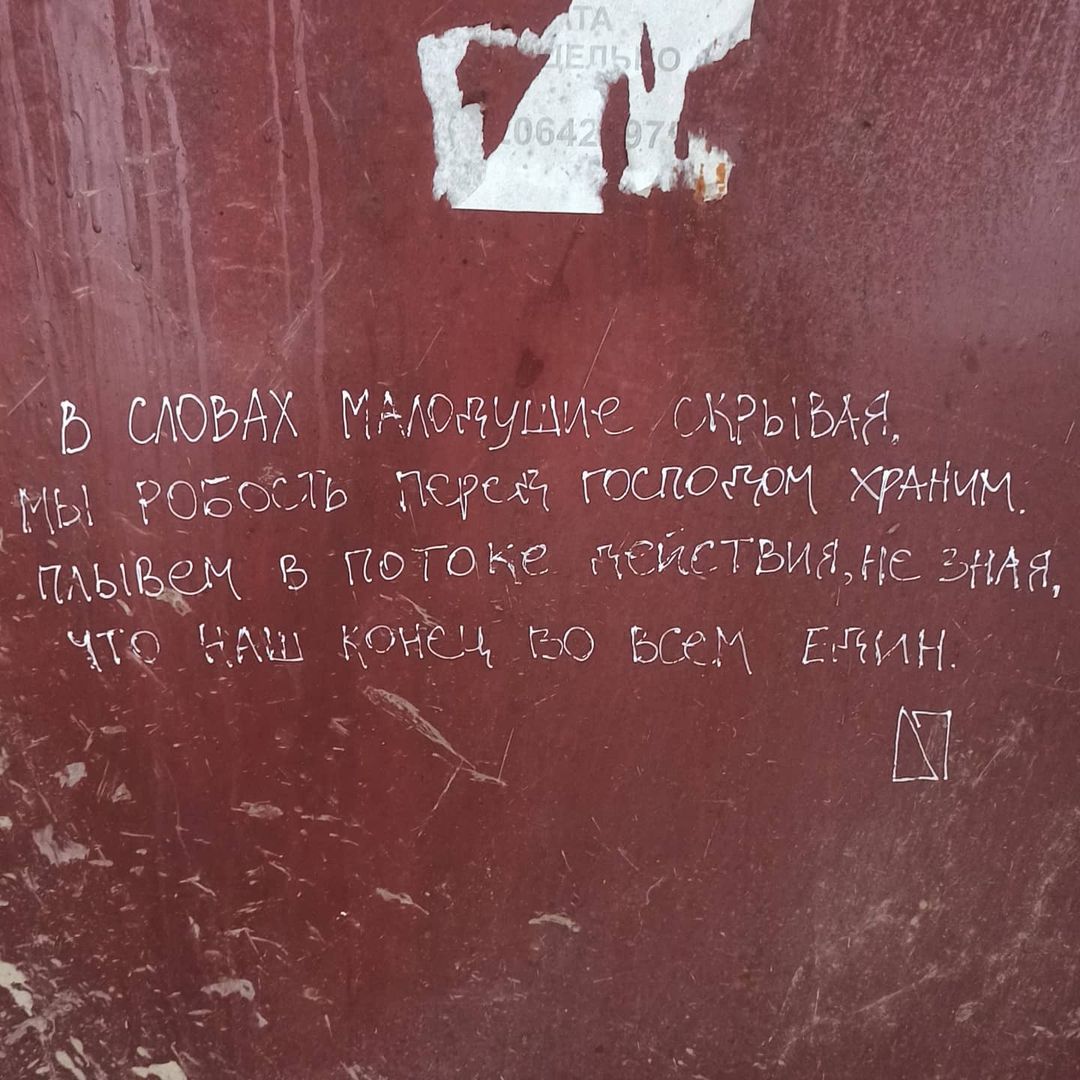 В СЛОВАХ МАЛОДУШИЕ СКРЫВАЯ,
МЫ РОБОСТЬ ПЕРЕД ГОСПОДОМ ХРАНИМ.
ПЛЫВЕМ В ПОТОКЕ ДЕЙСТВИЯ, НЕ ЗНАЯ,
ЧТО НАШ КОНЕЦ ВО ВСЕМ ЕДИН.